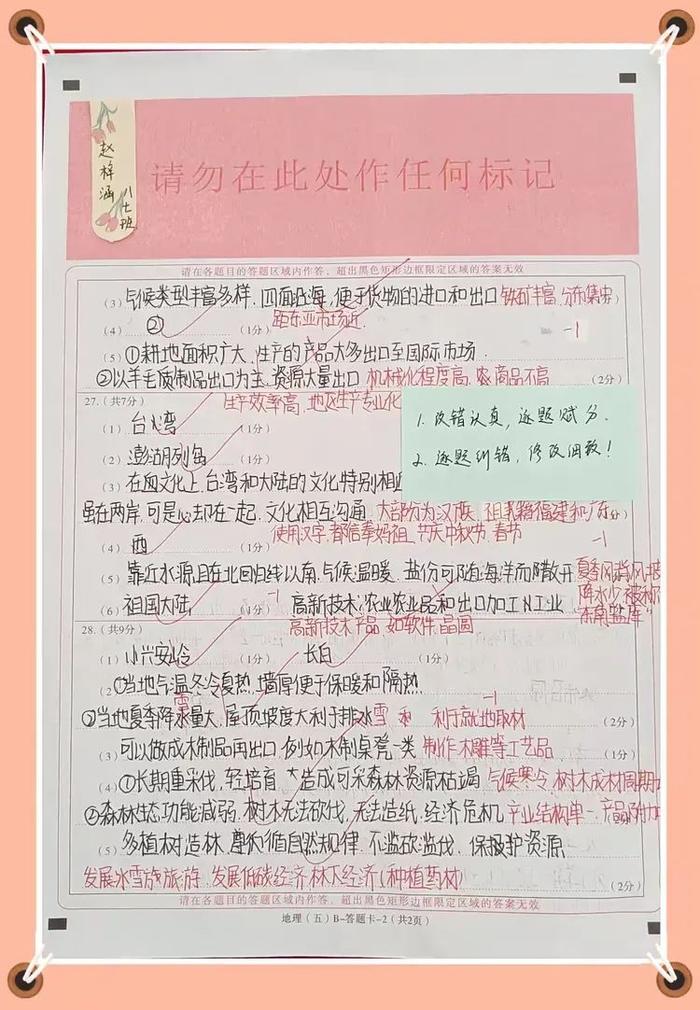 赵梓涵
八七班
请勿在此处作任何标记
请在各题目的答题区域内作答，超出黑色矩形边框限定区域的答案无效
(3) 气候类型丰富多样，四面临海，便于货物的进口和出口 铁矿丰富，分布集中
(4) ② (1分) 距东亚市场近. -1
(5) ①耕地面积广大，生产的产品大多出口至国际市场.
②以羊毛质制品出口为主，资源大量出口 机械化程度高，农商品不高 (2分)
27.(共7分) 生产效率高，地区生产专业化
(1) 台湾 (1分)
1. 改错认真，逐题赋分.
(2) 澎湖列岛 (1分)
2. 逐题纠错，修改细致！
(3) 在血文化上，台湾和大陆的文化特别相近
虽在两岸，可是心却在一起，文化相互沟通 大部分为汉族，祖籍福建和广东
(4) 西 (1分) 使用汉字，都信奉妈祖，节庆中秋节，春节 -1
(5) 靠近水源且在北回归线以南，气候温暖，盐份可随海洋而降放开 夏季风背风坡
(6) 祖国大陆 (1分) -1 高新技术，农业农业品和出口加工工业 降水少，被称
28.(共9分) 高新技术产品，如软件，晶圆 "东南盐库"
(1) 小兴安岭 (1分) 长白 (1分)
(2) ①当地气温冬冷夏热，墙厚便于保暖和隔热
雪 -1
②当地夏季降水量大，屋顶坡度大利于排水雪 利于就地取材 (2分)
(3) 可以做成木制品再出口，例如木制桌凳一类 制作木雕等工艺品 (1分)
(4) ①长期重采伐，轻培育，造成可采森林资源枯竭 气候寒冷，树木成材周期
②森林生态功能减弱，树木无法砍伐，无法造纸，经济危机 产业结构单一，产品附加
(5) 多植树造林，遵循自然规律，不滥砍滥伐，保护资源
发展冰雪旅游，发展低碳经济，林下经济(种植药材) (2分)
请在各题目的答题区域内作答，超出黑色矩形边框限定区域的答案无效
地理（五）B-答题卡-2（共2页）